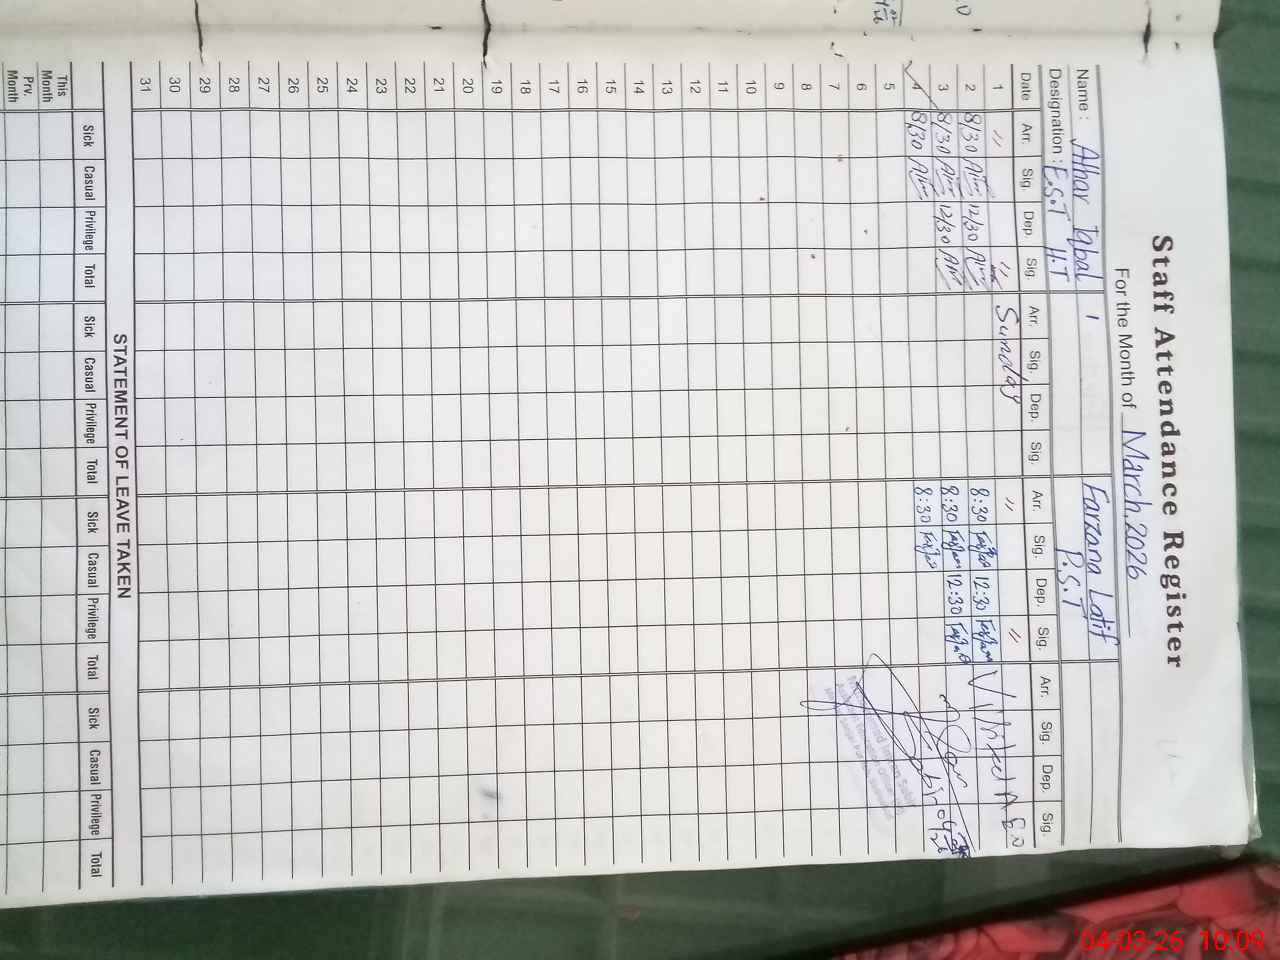 Staff Attendance Register
For the Month of March, 2026
Name : Athar Iqbal 1 Farzana Latif
Designation : E.S.T H.T P.S.T
Date Arr. Sig. Dep. Sig. Arr. Sig. Dep. Sig. Arr. Sig. Dep. Sig. Arr. Sig. Dep. Sig.
1 〃 〃 Sunday 〃 〃
2 8/30 12/30 8:30 12:30
3 8/30 12/30 8:30 12:30
4 8/30 8:30
5
6
7
8
9
10
11
12
13
14
15
16
17
18
19
20
21
22
23
24
25
26
27
28
29
30
31
Visited A E O
STATEMENT OF LEAVE TAKEN
Sick Casual Privilege Total Sick Casual Privilege Total Sick Casual Privilege Total Sick Casual Privilege Total
This Month
Prv. Month
04-03-26 10:09